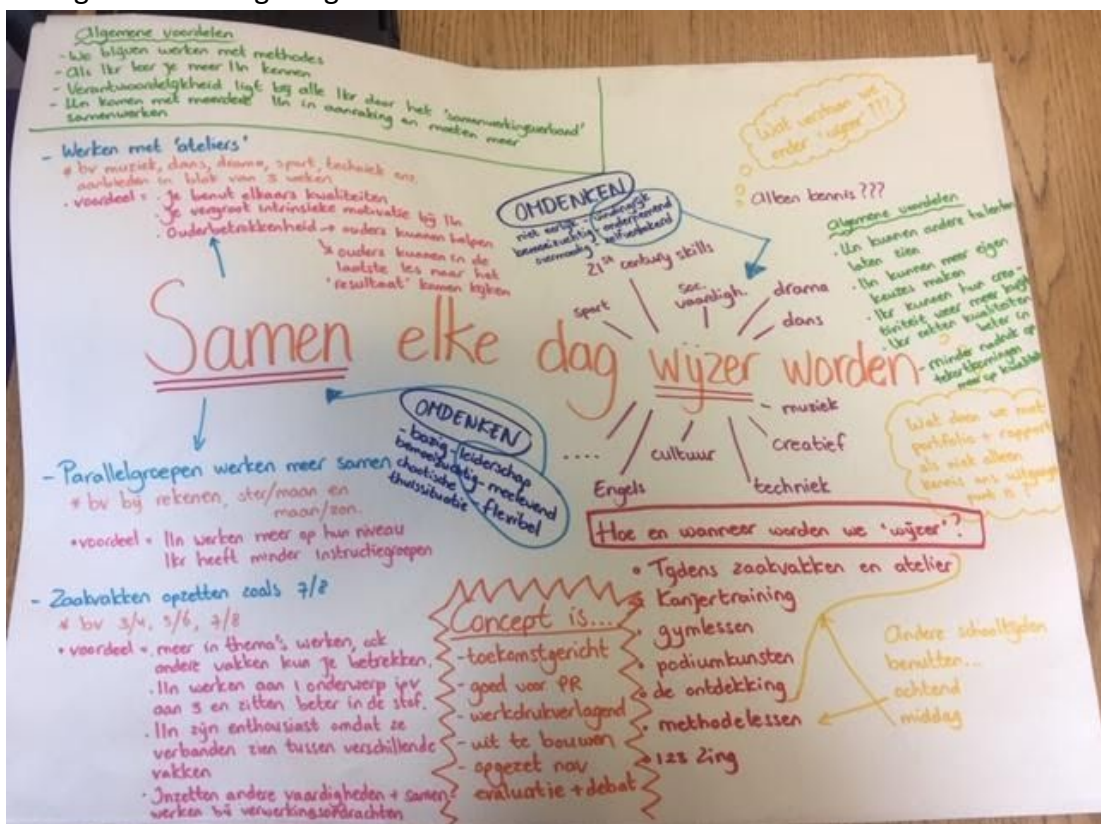 Algemene voordelen
- We blijven werken met methodes
- Als lkr leer je meer lln kennen
- Verantwoordelijkheid ligt bij alle lkr door het 'samenwerkingsverband'
- Lln komen met meerdere lln in aanraking en moeten meer
samenwerken
- Werken met 'ateliers'
* bv muziek, dans, drama, sport, techniek enz.
aanbieden in blok van 3 weken
• voordeel = • Je benut elkaars kwaliteiten
• Je vergroot intrinsieke motivatie bij lln
• Ouderbetrokkenheid → ouders kunnen helpen
↘ ouders kunnen in de
laatste les naar het
'resultaat' komen kijken
OMDENKEN
niet eerlijk -
bemoeizuchtig - ondernemend
overmoedig - zelfverzekerd
Wat verstaan we
onder 'wijzer'???
Alleen kennis???
Algemene voordelen
• Lln kunnen andere talenten
laten zien
• lln kunnen meer eigen
keuzes maken
• lkr kunnen hun crea-
tiviteit weer meer kwijt
• lkr zetten kwaliteiten
beter in
- minder nadruk op
tekortkomingen
meer op kwaliteit
Samen elke dag wijzer worden
21st century skills
sport
soc.
vaardigh.
drama
dans
muziek
creatief
techniek
cultuur
....
Engels
OMDENKEN
- bazig - leiderschap
bemoeizuchtig - meelevend
chaotische
thuissituatie - flexibel
Wat doen we met
portfolio + rapport
als niet alleen
kennis ons uitgangs
punt is?
- Parallelgroepen werken meer samen
* bv bij rekenen, ster/maan en
maan/zon.
• voordeel = lln werken meer op hun niveau
lkr heeft minder instructiegroepen
- Zaakvakken opzetten zoals 7/8
* bv 3/4, 5/6, 7/8
• voordeel = • meer in thema's werken, ook
andere vakken kun je betrekken.
• lln werken aan 1 onderwerp ipv
aan 3 en zitten beter in de stof.
• lln zijn enthousiast omdat ze
verbanden zien tussen verschillende
vakken
• Inzetten andere vaardigheden + samen
werken bij verwerkingsopdrachten
Concept is...
- toekomstgericht
- goed voor PR
- werkdrukverlagend
- uit te bouwen
- opgezet nav
evaluatie + debat
Hoe en wanneer worden we 'wijzer'?
• Tijdens zaakvakken en atelier
• Kanjertraining
• gymlessen
• podiumkunsten
• de ontdekking
• methodelessen
• 123 Zing
Andere schooltijden
benutten...
ochtend
middag